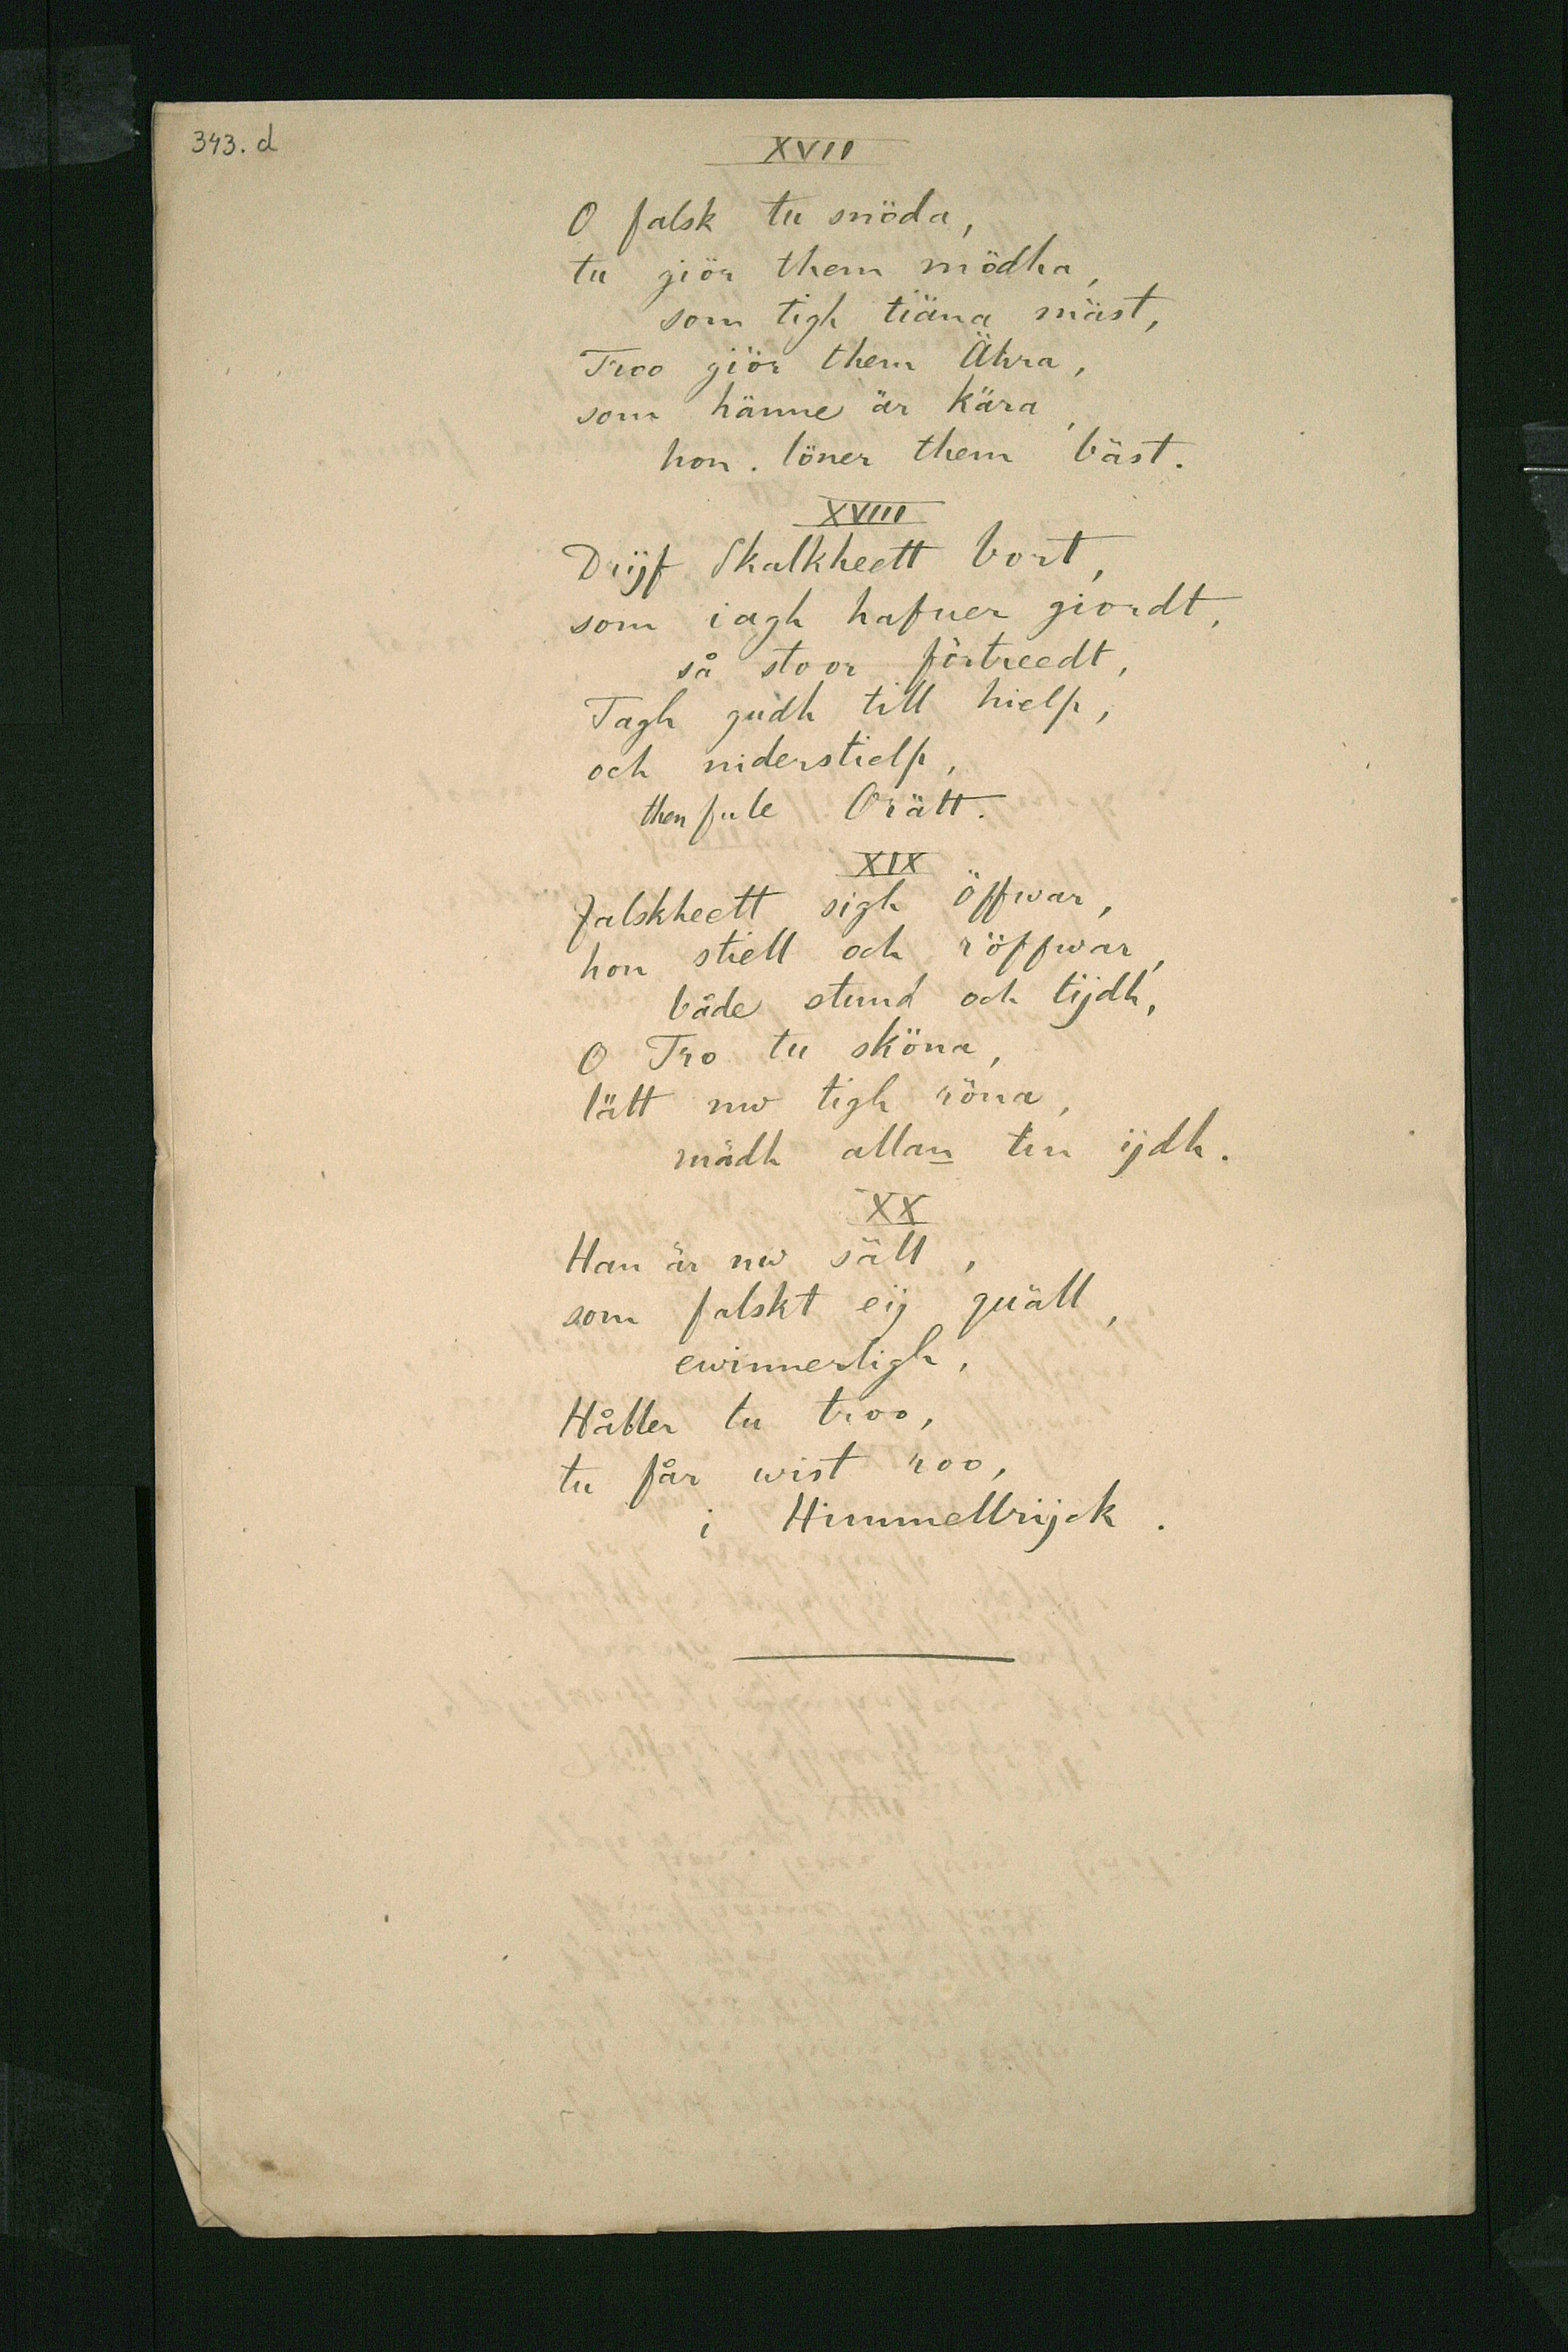 343. d
XVII
O falsk tu snöda,
tu giör them mödha,
som tigh tiäna mäst,
Troo giör them Ähra,
som hänne är kära,
hon. löner them bäst.
XVIII
Drijf Skalkheett bort,
som iagh hafuer giordt,
så stoor förtreedt,
Tagh gudh till hielp,
och niderstielp,
then fule Orätt.
XIX
Falskheett sigh öffwar,
hon stiell och röffwar,
både stund och tijdh,
O Tro tu sköna,
lätt nw tigh röna,
mädh allan tin ijdh.
XX
Han är nw säll,
som falskt eij quäll,
ewinnerligh,
Håller tu troo,
tu får wist roo,
i Himmellrijck.